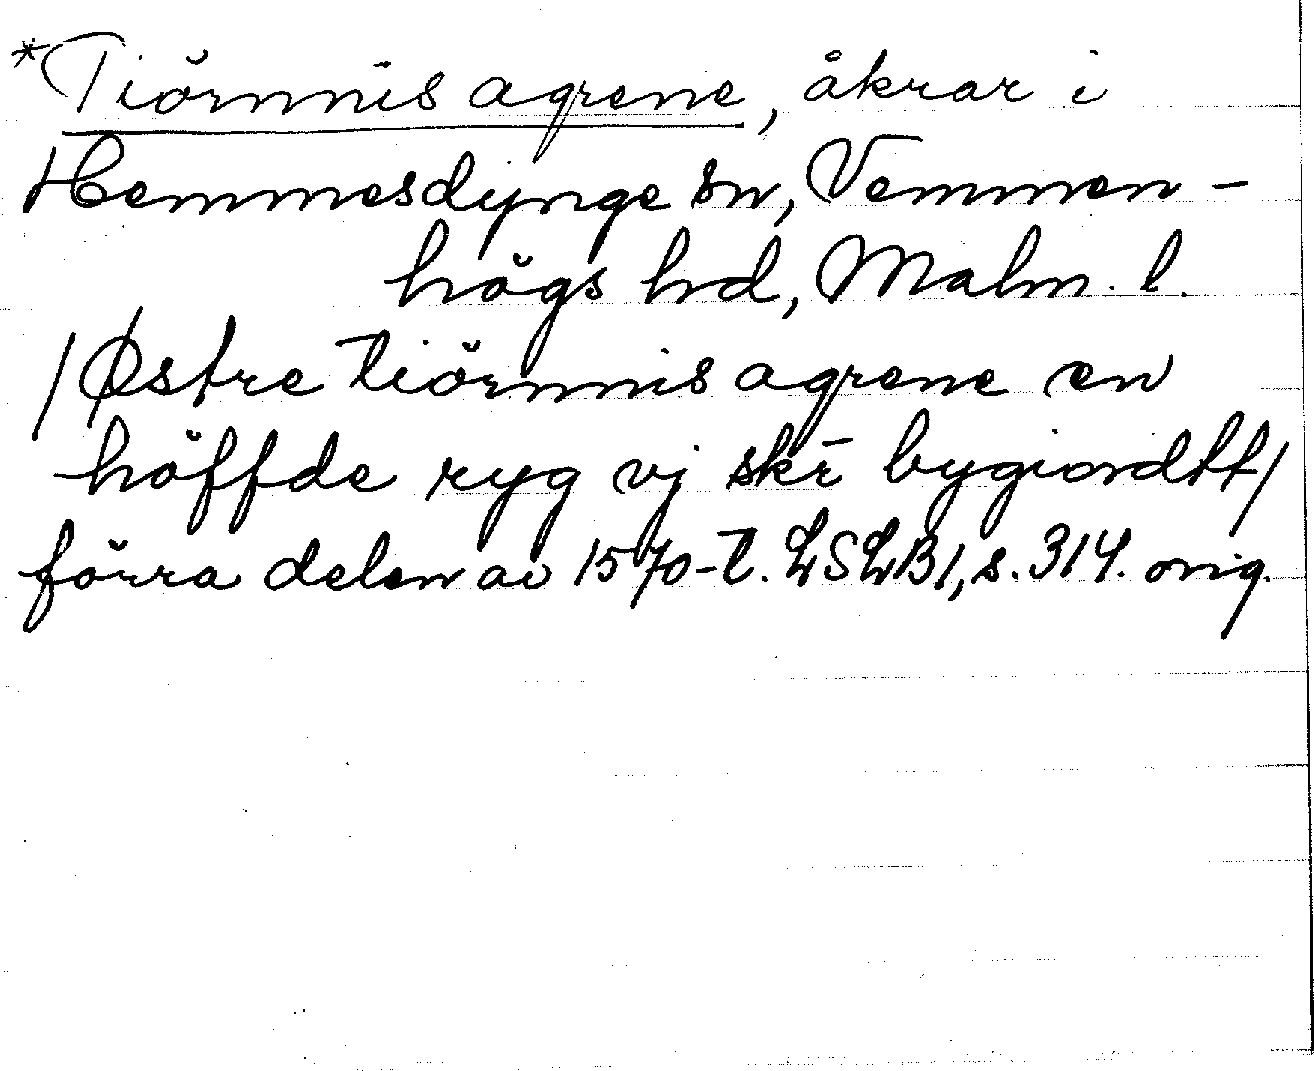 *Tiörnnis agrene, åkrar i
Hemmesdynge sn, Vemmen-
högs hd, Malm. l.
/Østre tiörnnis agrene en
höffde ryg vj skr̄ bygiordtt/
förra delen av 1570-t. LSLB1, s. 314. orig.